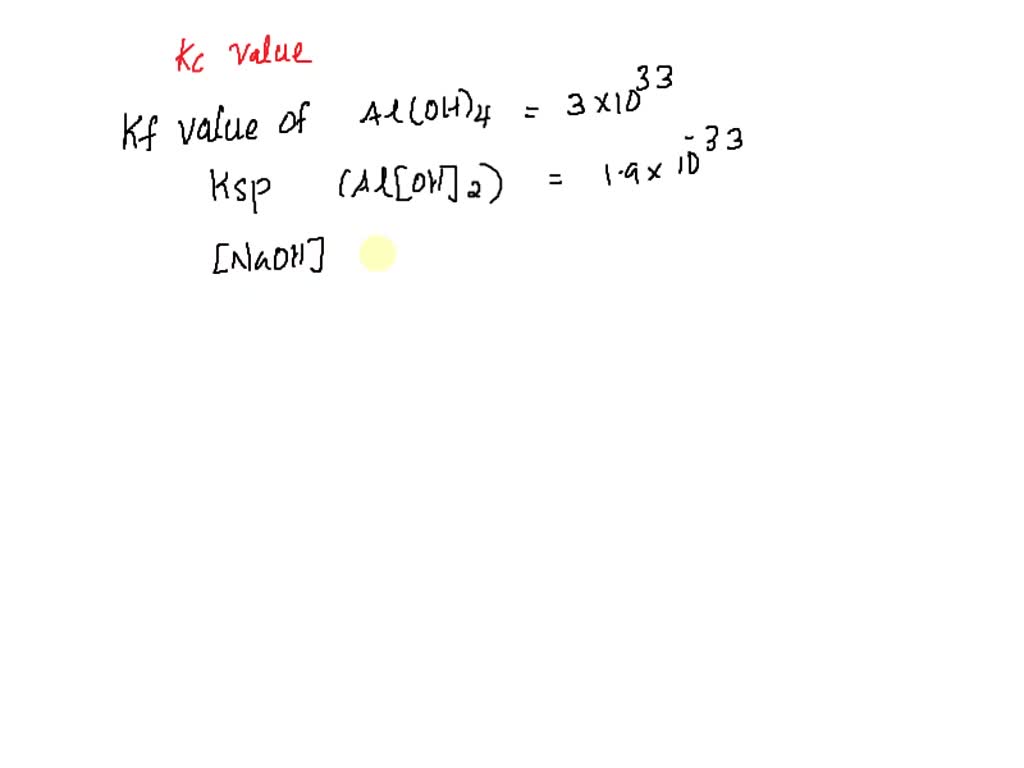 Kc value
Kf value of Al(OH)4 = 3 × 10^33
Ksp (Al[OH]2) = 1.9 × 10^-33
[NaOH]